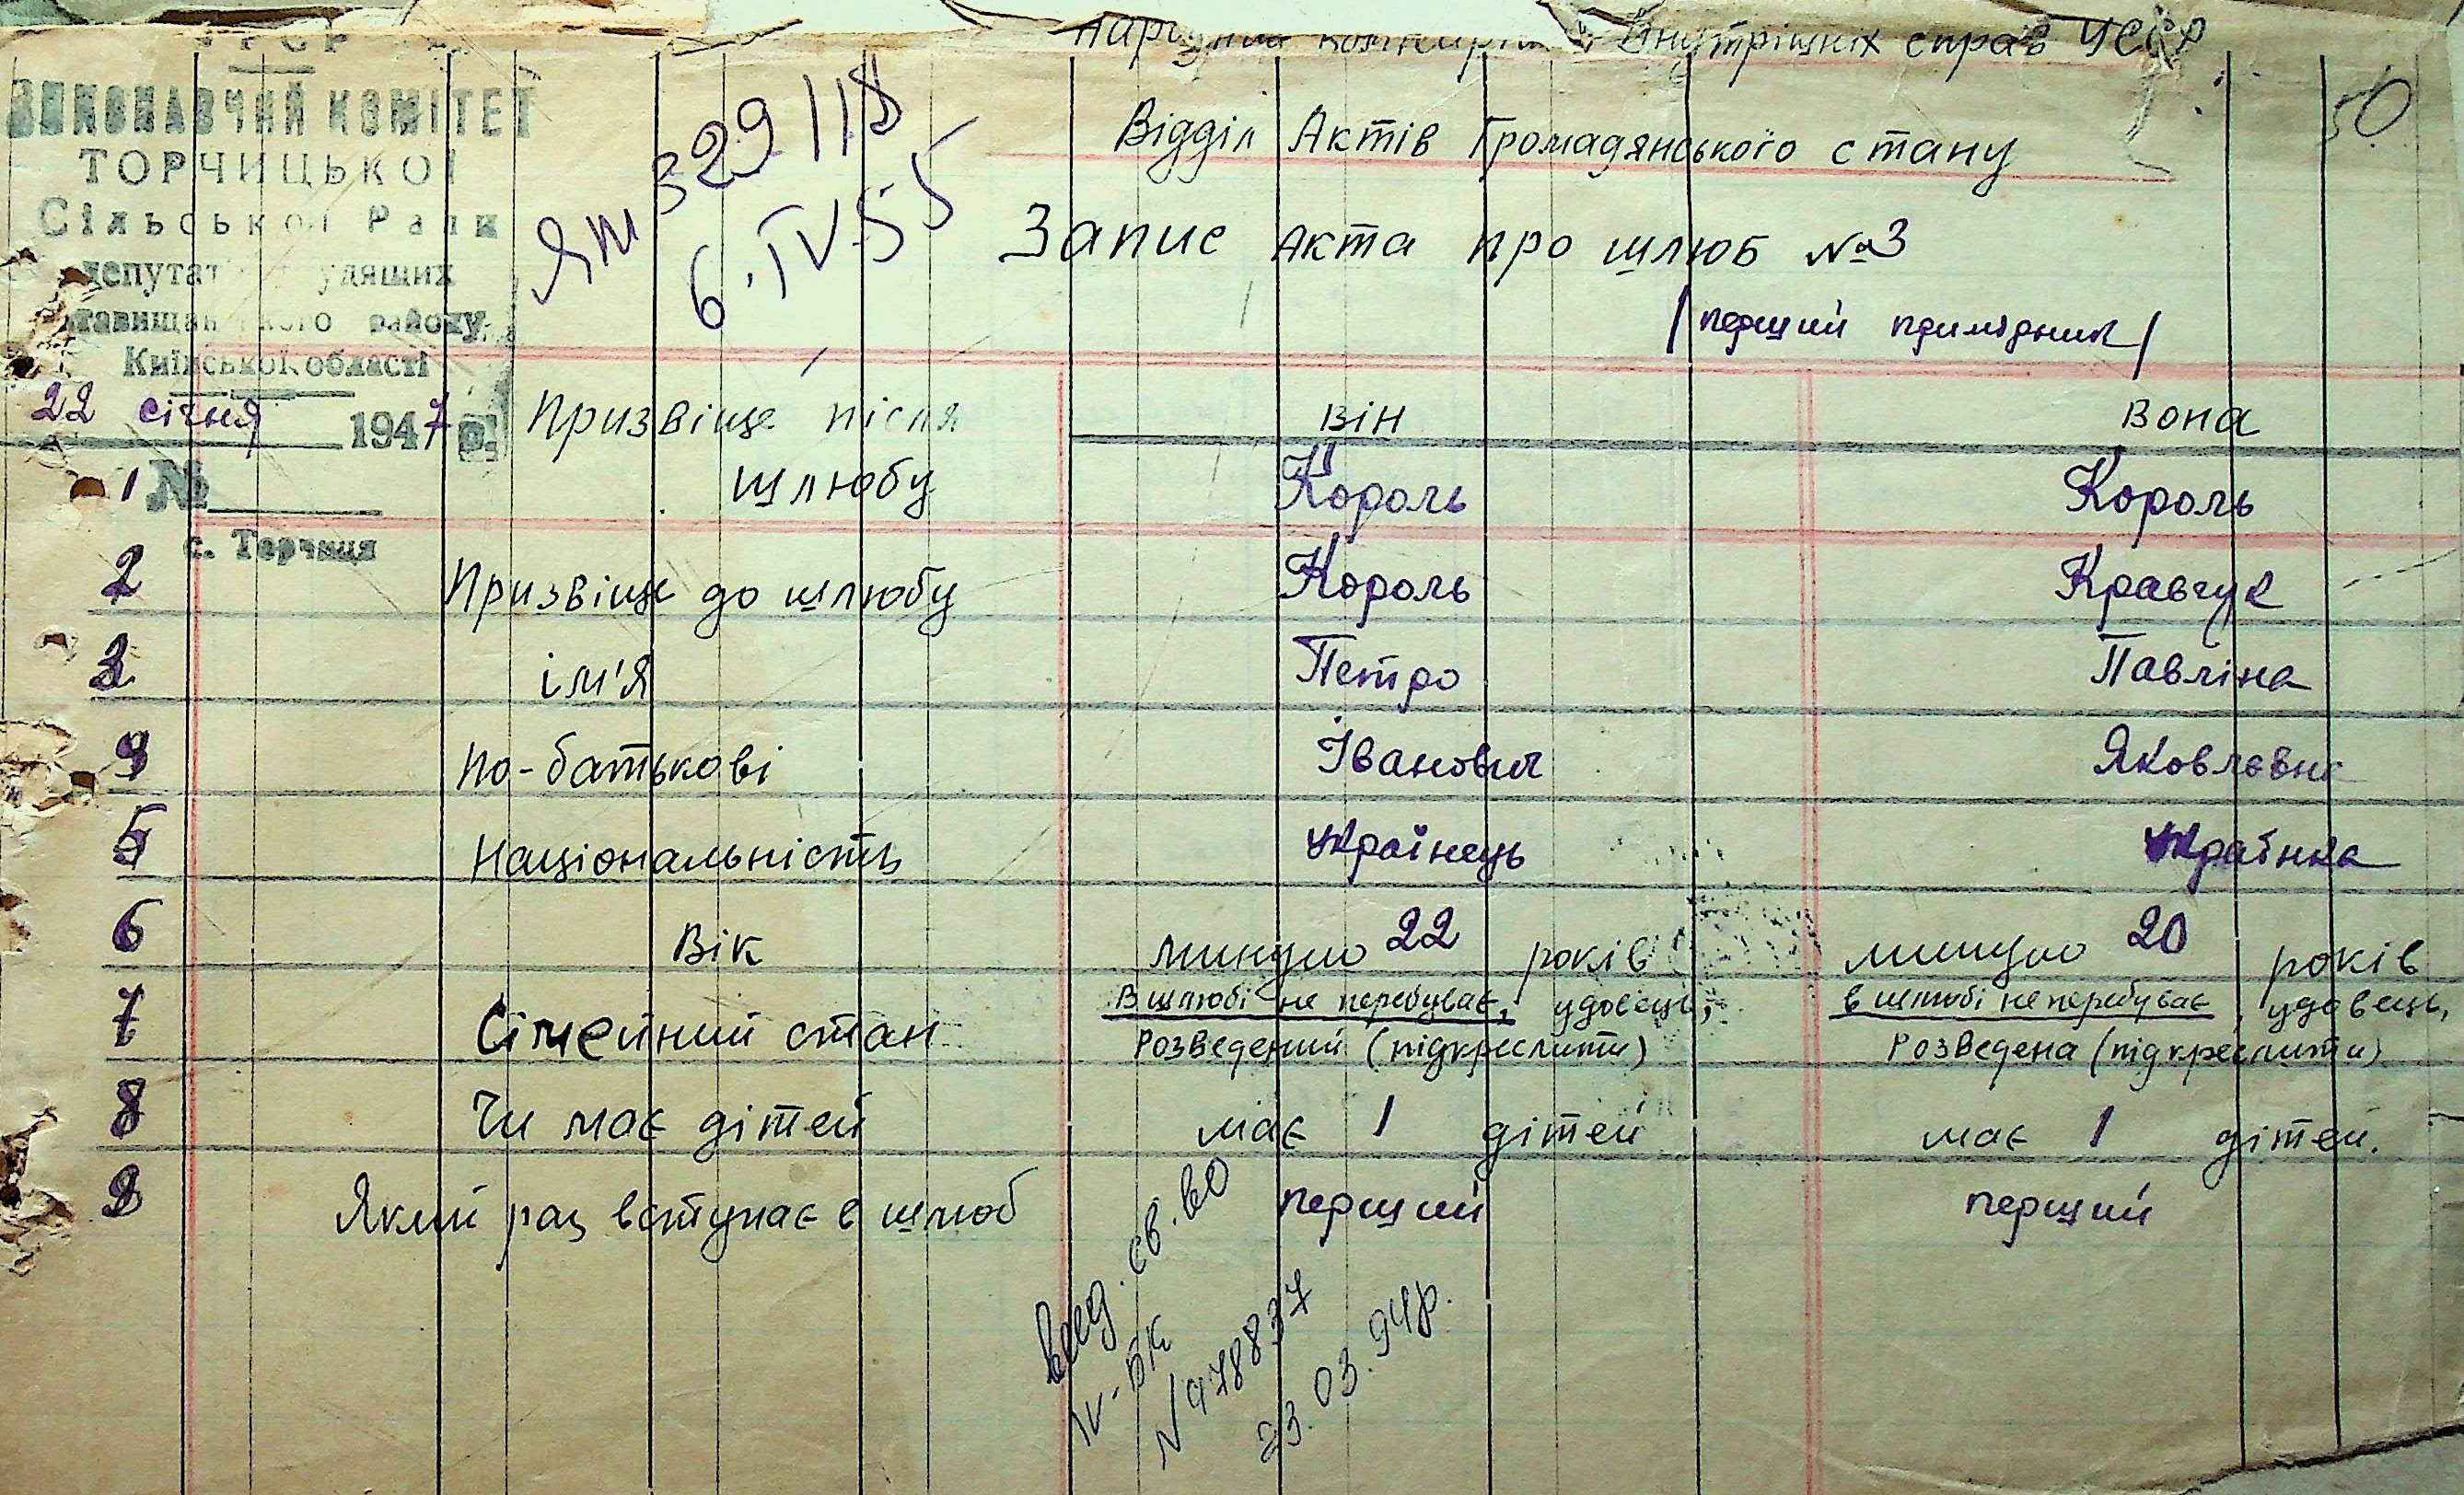 УРСР
ВИКОНАВЧИЙ КОМІТЕТ
ТОРЧИЦЬКОЇ
Сільської Ради
депутат удящих
тавищан кого району
Київської області
22 січня 1947 р.
№
с. Торчиця
Внутрішніх справ УССР
50
Відділ Актів Громадянського стану
Запис Акта про шлюб №3
/перший примірник/
ЯШ 329118
6.IV-55
1 Призвіще після шлюбу
Він Вона
Король Король
2 Призвіще до шлюбу Король Кравчук
3 ім'я Петро Павліна
4 по-батькові Іванович Яковлевна
5 Національність українець українка
6 Вік минуло 22 років минуло 20 років
7 Сімейний стан В шлюбі не перебуває, удовець, в шлюбі не перебуває, удовець,
Розведений (підкреслити) Розведена (підкреслити)
8 Чи має дітей має 1 дітей має 1 дітей.
9 Який раз вступає в шлюб перший перший
св.во
IV-БК
N 478837
23.03.94р.